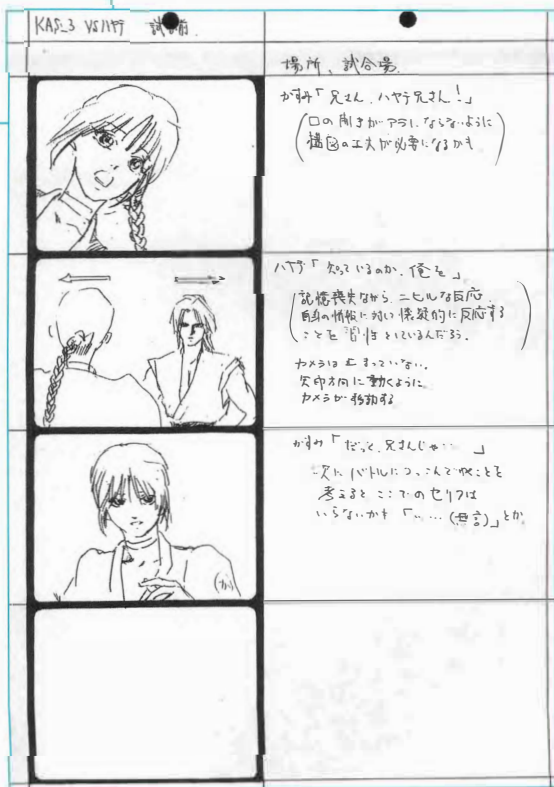 KAS_3 VSハヤテ 試合前.
場所、試合場.
かすみ「兄さん、ハヤテ兄さん!」
(口の開きがアラにならないように
構図の工夫が必要になるかも)
ハヤテ「知っているのか、俺を」
(記憶喪失ながら、ニヒルな反応.
自身の情報に対して懐疑的に反応する
ことを習性としているんだろう.)
カメラは止まっていない.
矢印方向に動くように
カメラが移動する
かすみ「だって、兄さんじゃ… 」
次にバトルにつっこんでゆくことを
考えると ここでのセリフは
いらないかも「……(無言)」とか.